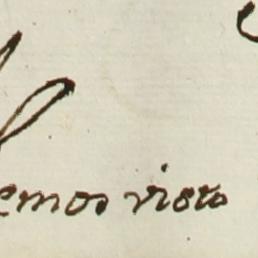 emos visto